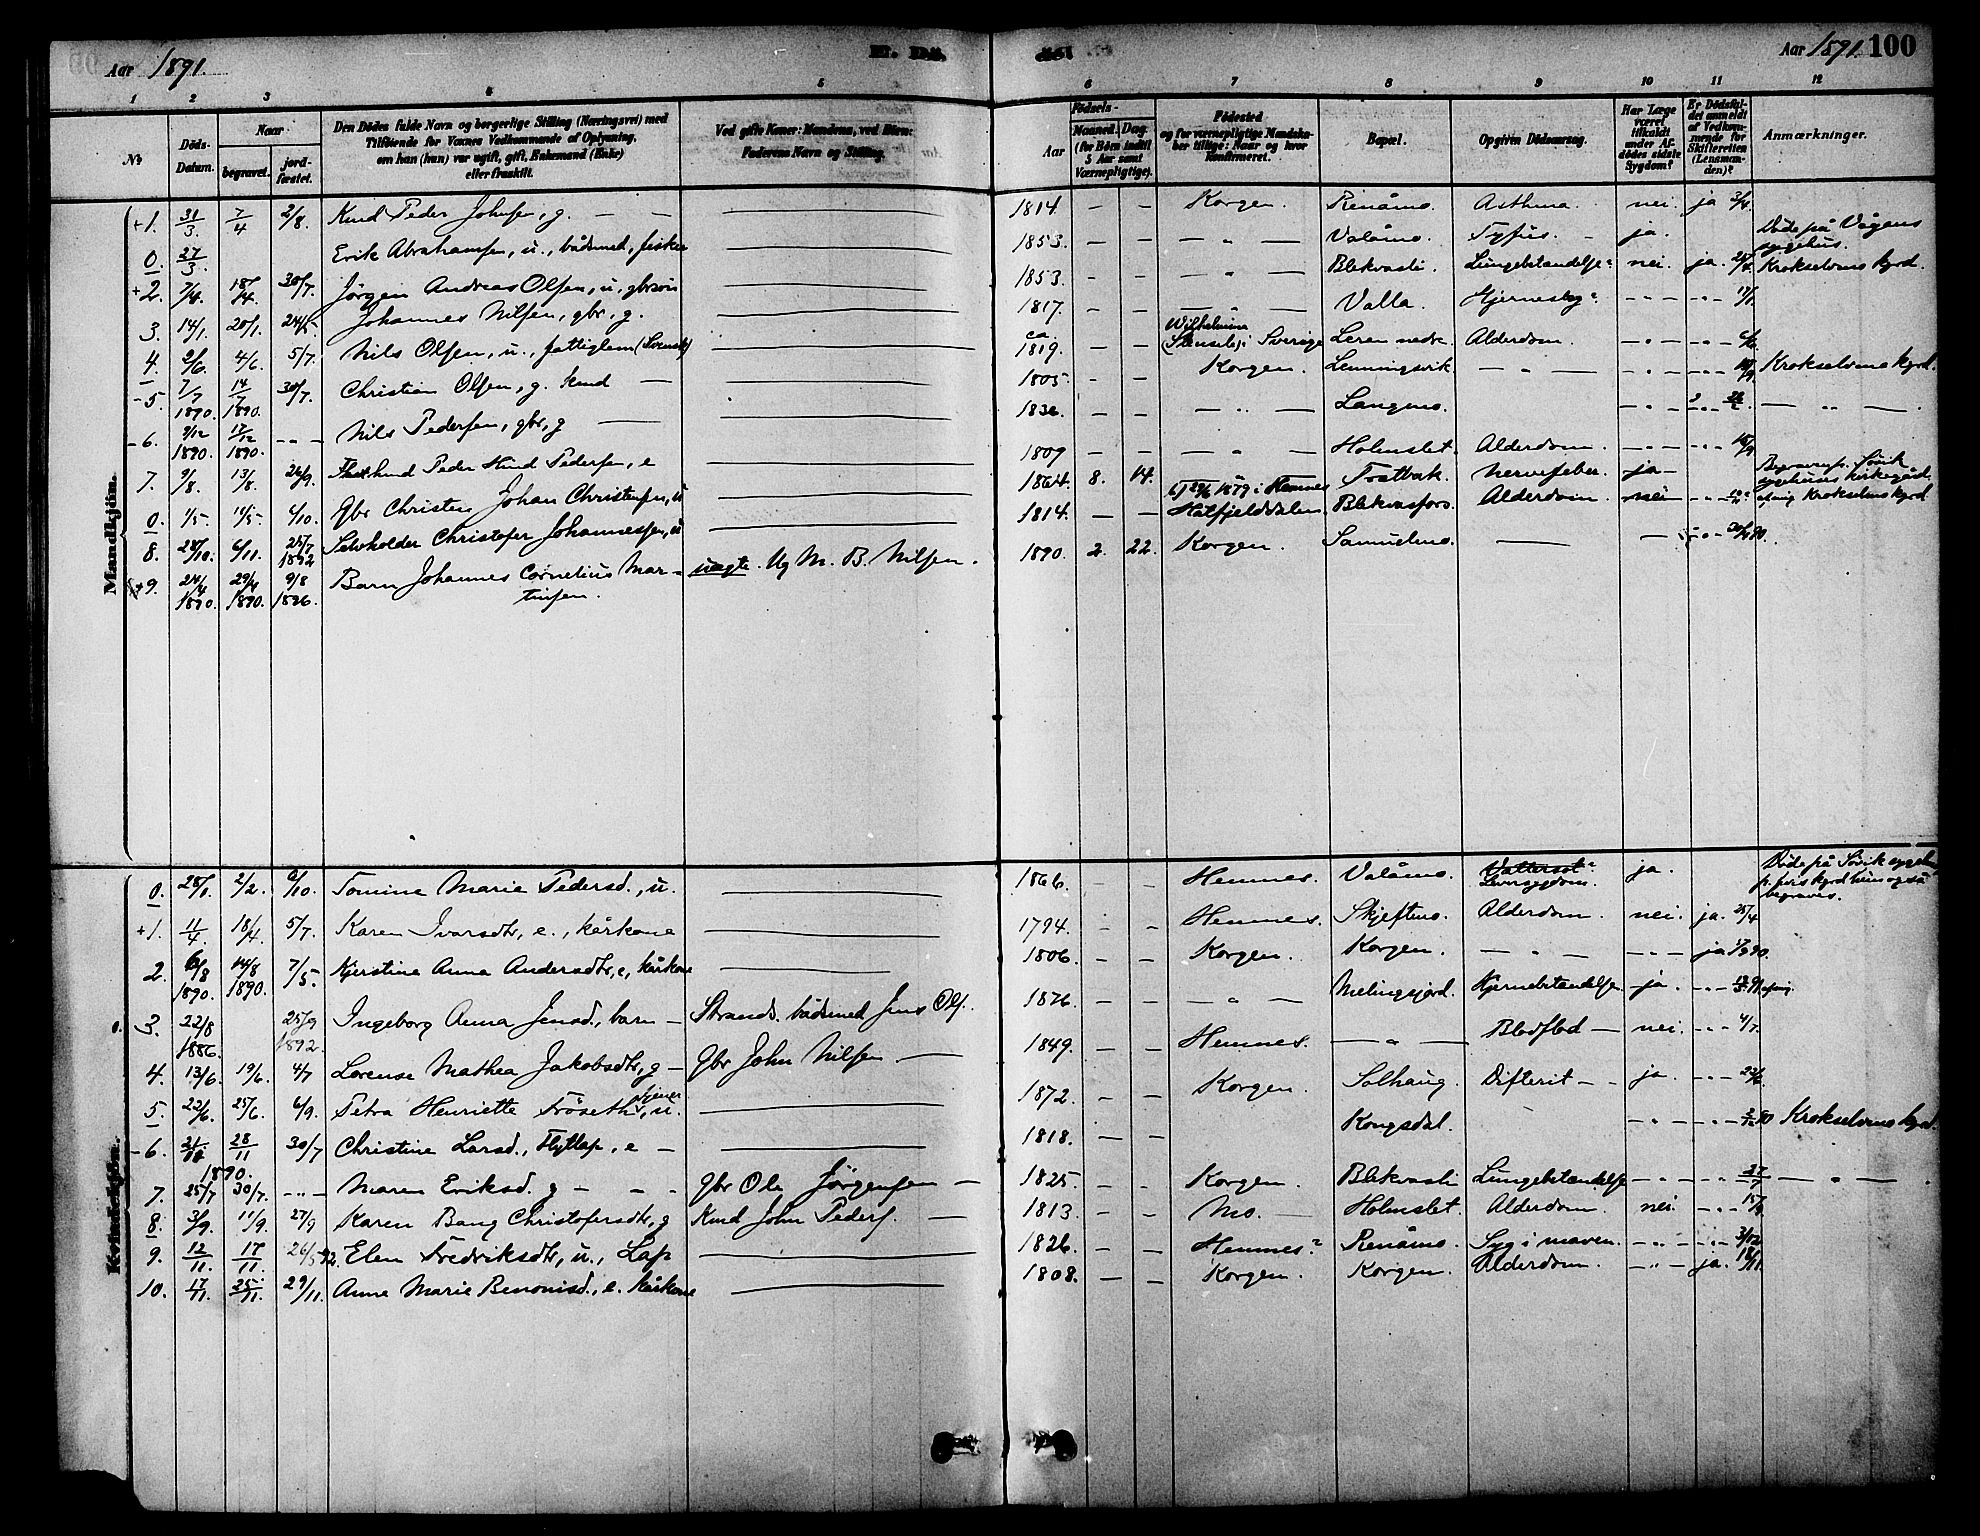 Aar 1891.
E. Dö
de.
Aar 1891. 100
1 2 3 4 5 6 7 8 9 10 11 12
No.
Döds-Datum.
Naar
begravet.
jord-fæstet.
Den Dödes fulde Navn og borgerlige Stilling (Næringsvei) med
Tilföiende for Voxnes Vedkommende af Oplysning,
om han (hun) var ugift, gift, Enkemand (Enke)
eller fraskilt.
Ved gifte Koner: Mandens, ved Börn:
Faderens Navn og Stilling.
Födsels-
Aar
Maaned. Dag.
(for Börn indtil
5 Aar samt
Værnepligtige).
Födested
og for værnepligtige Mandska-
ber tillige: Naar og hvor
konfirmeret.
Bopæl.
Opgiven Dödsaarsag.
Har Læge
været
tilkaldt
under Af-
dödes sidste
Sygdom?
Er Dödsfal-
det anmeldt
af Vedkom-
mende for
Skifteretten
(Lensman-
den)?
Anmærkninger.
Mandkjön.
+1. 31/3. 7/4 2/8. Knud Peder Johnsen, g. — — 1814. — — Korgen. Renåmo. Asthma. nei. ja 3/4.
0. 27/3. Erik Abrahamsen, u., bådsmed, fisker — 1853. — — — " — Valåmo. Tyfus. — ja. Döde på Vågens sygehus.
+2. 7/4. 18/4. 30/7. Jörgen Andreas Olsen, u, gbrsön — 1853. — — — " — Blekvasli. Lungebetændelse? nei. ja. 25/4. Krokselvens kgrd.
3. 14/1. 20/1. 24/5 Johannes Nilsen, gbr, g. — 1817. — — — " — Valla. Hjernesyg? — " — — " — 17/1.
4. 2/6. 4/6. 5/7. Nils Olsen, u., fattiglem (Svensk) — ca 1819. — — Wilhelmina (Stensele) i Sverige Leren nedre Alderdom. — " — — " —
-5. 7/7 1890. 14/7 1890. 30/7. Christian Olsen, g. kund — — 1805. — — Korgen. Lenningsvik. — " — — " — Krokselvens kgrd.
-6. 9/12 1890. 17/12 1890. — " — Nils Pedersen, gbr, g — — 1836. — — — " — Langmo. — " — — " —
7. 9/8. 13/8. 26/9. Peder Knud Pedersen, e — 1809 — — — " — Holmslet. Alderdom. — " — — " —
0. 1/5. 11/5. 4/10. Gbr Christen Johan Christensen, u — 1864. 8. 14. 1879 i Hemnes Tratbak. Nervefeber. ja — Krokselvens kgrd
8. 28/10. 6/11. 25/7 1892 Selvholder Christofer Johannessen, u — 1814. — — Hatfjelddalen. Blekvasfors. Alderdom. nei
+9. 24/4 1890. 29/4 1890. 9/8 1896. Barn Johannes Cornelius Mar-
tinsen. — uægte. Ug M. B. Nilsen. 1890. 2. 22. Korgen. Samuelmo. —
Kvindekjön.
0. 28/1. 2/2. 6/10. Tomine Marie Pedersd., u. — 1866. — — Hemnes. Valåmo. Vattersot? Leversygdom. ja. Döde på Sövik sygehus, begraves.
+1. 11/4. 18/4. 5/7. Karen Ivarsdtr, e., kårkone — 1794. — — Hemnes. Skjeftmo. Alderdom. nei. ja. 25/4
2. 6/8 1890. 14/8 1890. 7/5. Kjerstine Anna Andersdtr, e, kårkone — 1806. — — Korgen. Korgen. — " — ja
3. 22/8 1886. 25/9 1892. Ingeborg Anna Jensd., barn — Strands. bådsmed Jens Ols. 1876. — — — " — Melingsjord. Hjernebetændelse ja.
4. 13/6. 19/6. 4/7 Lorense Mathea Jakobsdtr, g — Gbr John Nilsen — 1849. — — Hemnes. — " — Blodflod — nei. — " — 4/7.
5. 22/6. 25/6. 6/9. Petra Henriette Fröseth, tjener, u. — 1872. — — Korgen. Solhaug. Difterit — — ja. — " —
-6. 21/11 28/11 1890. 30/7 Christine Larsd., Flytlap, e — — 1818. — — Kongsdal. — " — — " — Krokselvens kgrd.
7. 25/7 30/7. — " — Maren Eriksd. g — — Gbr Ole Jörgensen — 1825. — — Korgen. Blekvasli Lungebetændelse — " — — " — 27/7 — " —
8. 3/9. 11/9. 27/9 Karen Bang Christofersdtr, g Knud John Peders. — 1813. — — Mo. — Holmslet. Alderdom. nei. — " — 15/9.
9. 12/11. 17/11. 26/5 92. Elen Fredriksdtr, u., Lap — 1826. — — Hemnes? Renåmo. Syg i maven. — " — — " — 2/12
10. 17/11. 25/11. 29/11. Anne Marie Benonisd., e. kårkone — 1808. — — Korgen. Korgen. Alderdom. — " — ja. 18/11.